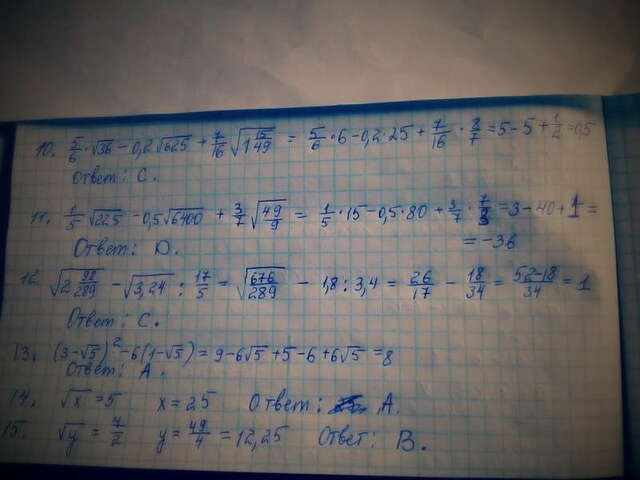 10. 5/6 · √36 − 0,2√625 + 7/16 √1 15/49 = 5/6 · 6 − 0,2 · 25 + 7/16 · 8/7 = 5 − 5 + 1/2 = 0,5
Ответ: C.
11. 1/5 √225 − 0,5√6400 + 3/7 √49/9 = 1/5 · 15 − 0,5 · 80 + 3/7 · 7/3 = 3 − 40 + 1 =
= −36
Ответ: D.
12. √2 98/289 − √3,24 : 17/5 = √676/289 − 1,8 : 3,4 = 26/17 − 18/34 = 52−18/34 = 1
Ответ: C.
13. (3−√5)² − 6(1−√5) = 9 − 6√5 + 5 − 6 + 6√5 = 8
Ответ: A.
14. √x = 5 x = 25 Ответ: A.
15. √y = 7/2 y = 49/4 = 12,25 Ответ: B.